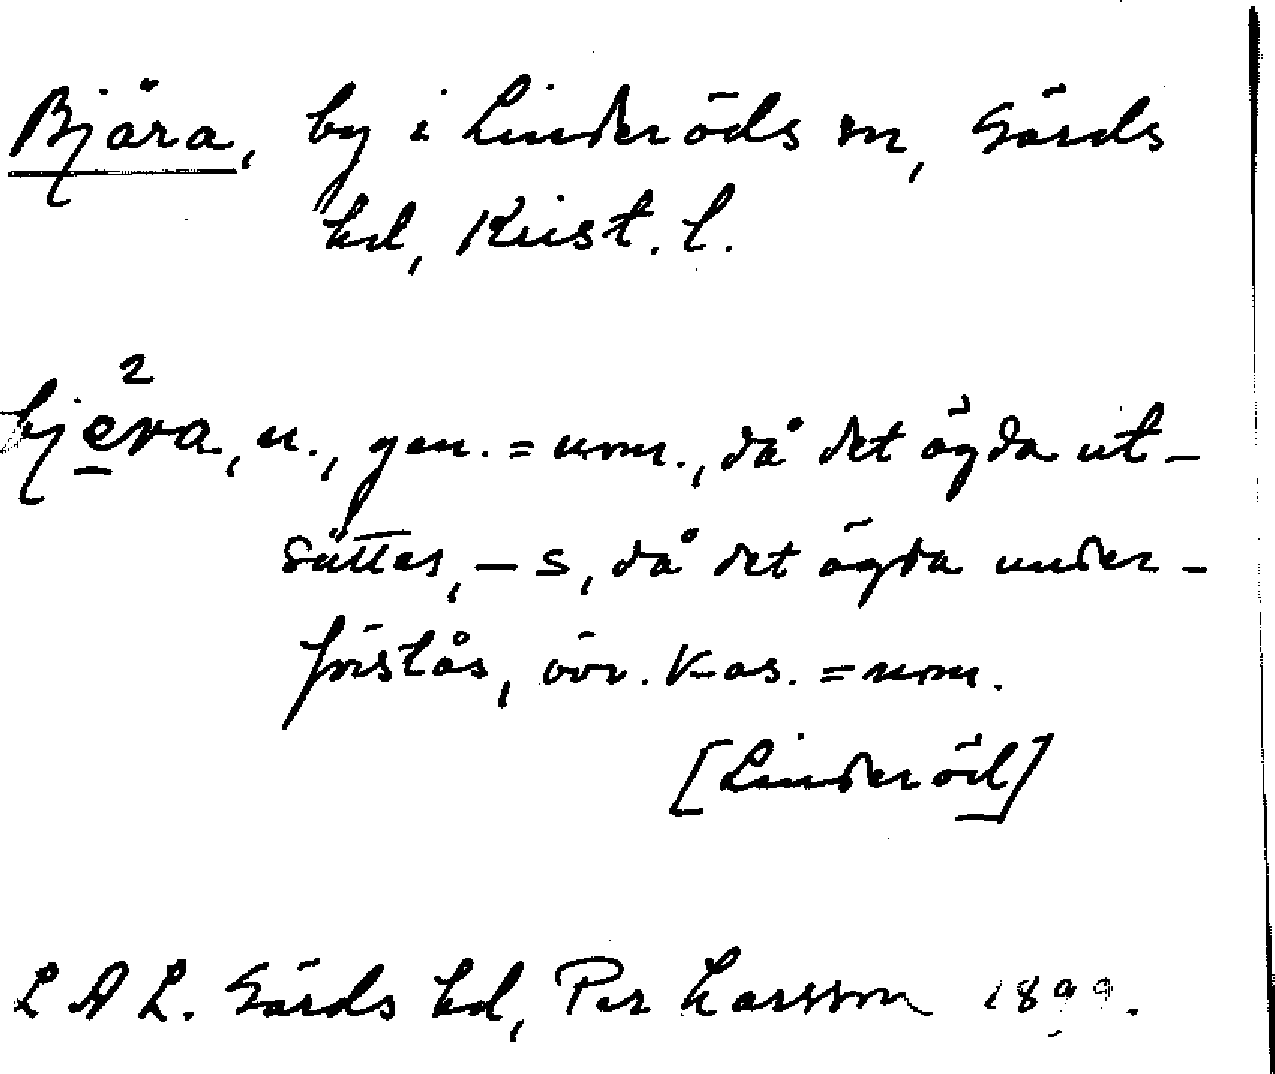 Bjära, by i Linderöds sn, Gärds
hd, Krist. l.
2
bjera, n., gen. = nom., då det ägda ut-
sättes, -s, då det ägda under-
förstås, övr. kas. = nom.
[Linderöd]
L A L. Gärds hd, Per Larsson 1899.